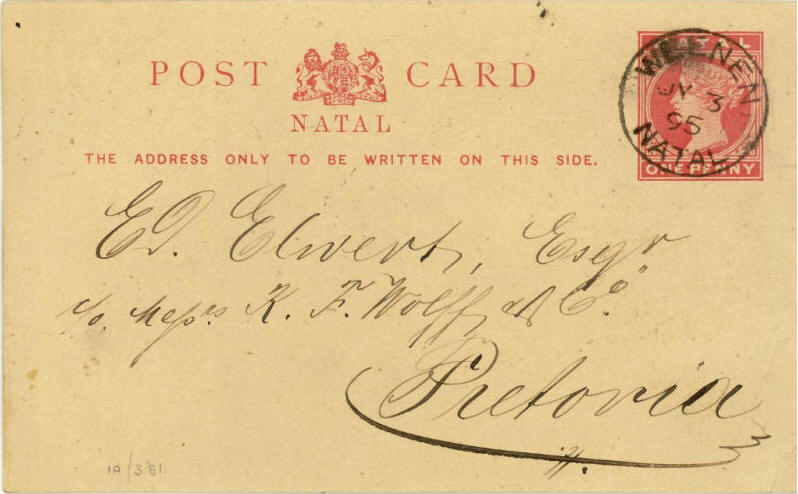 POST CARD
NATAL
THE ADDRESS ONLY TO BE WRITTEN ON THIS SIDE.
NATAL
ONE PENNY
WEENEN
JY 3
95
NATAL
ED. Elwert, Esqr
c/o. Messrs K. F. Wolff & Co.
Pretoria
1A/381